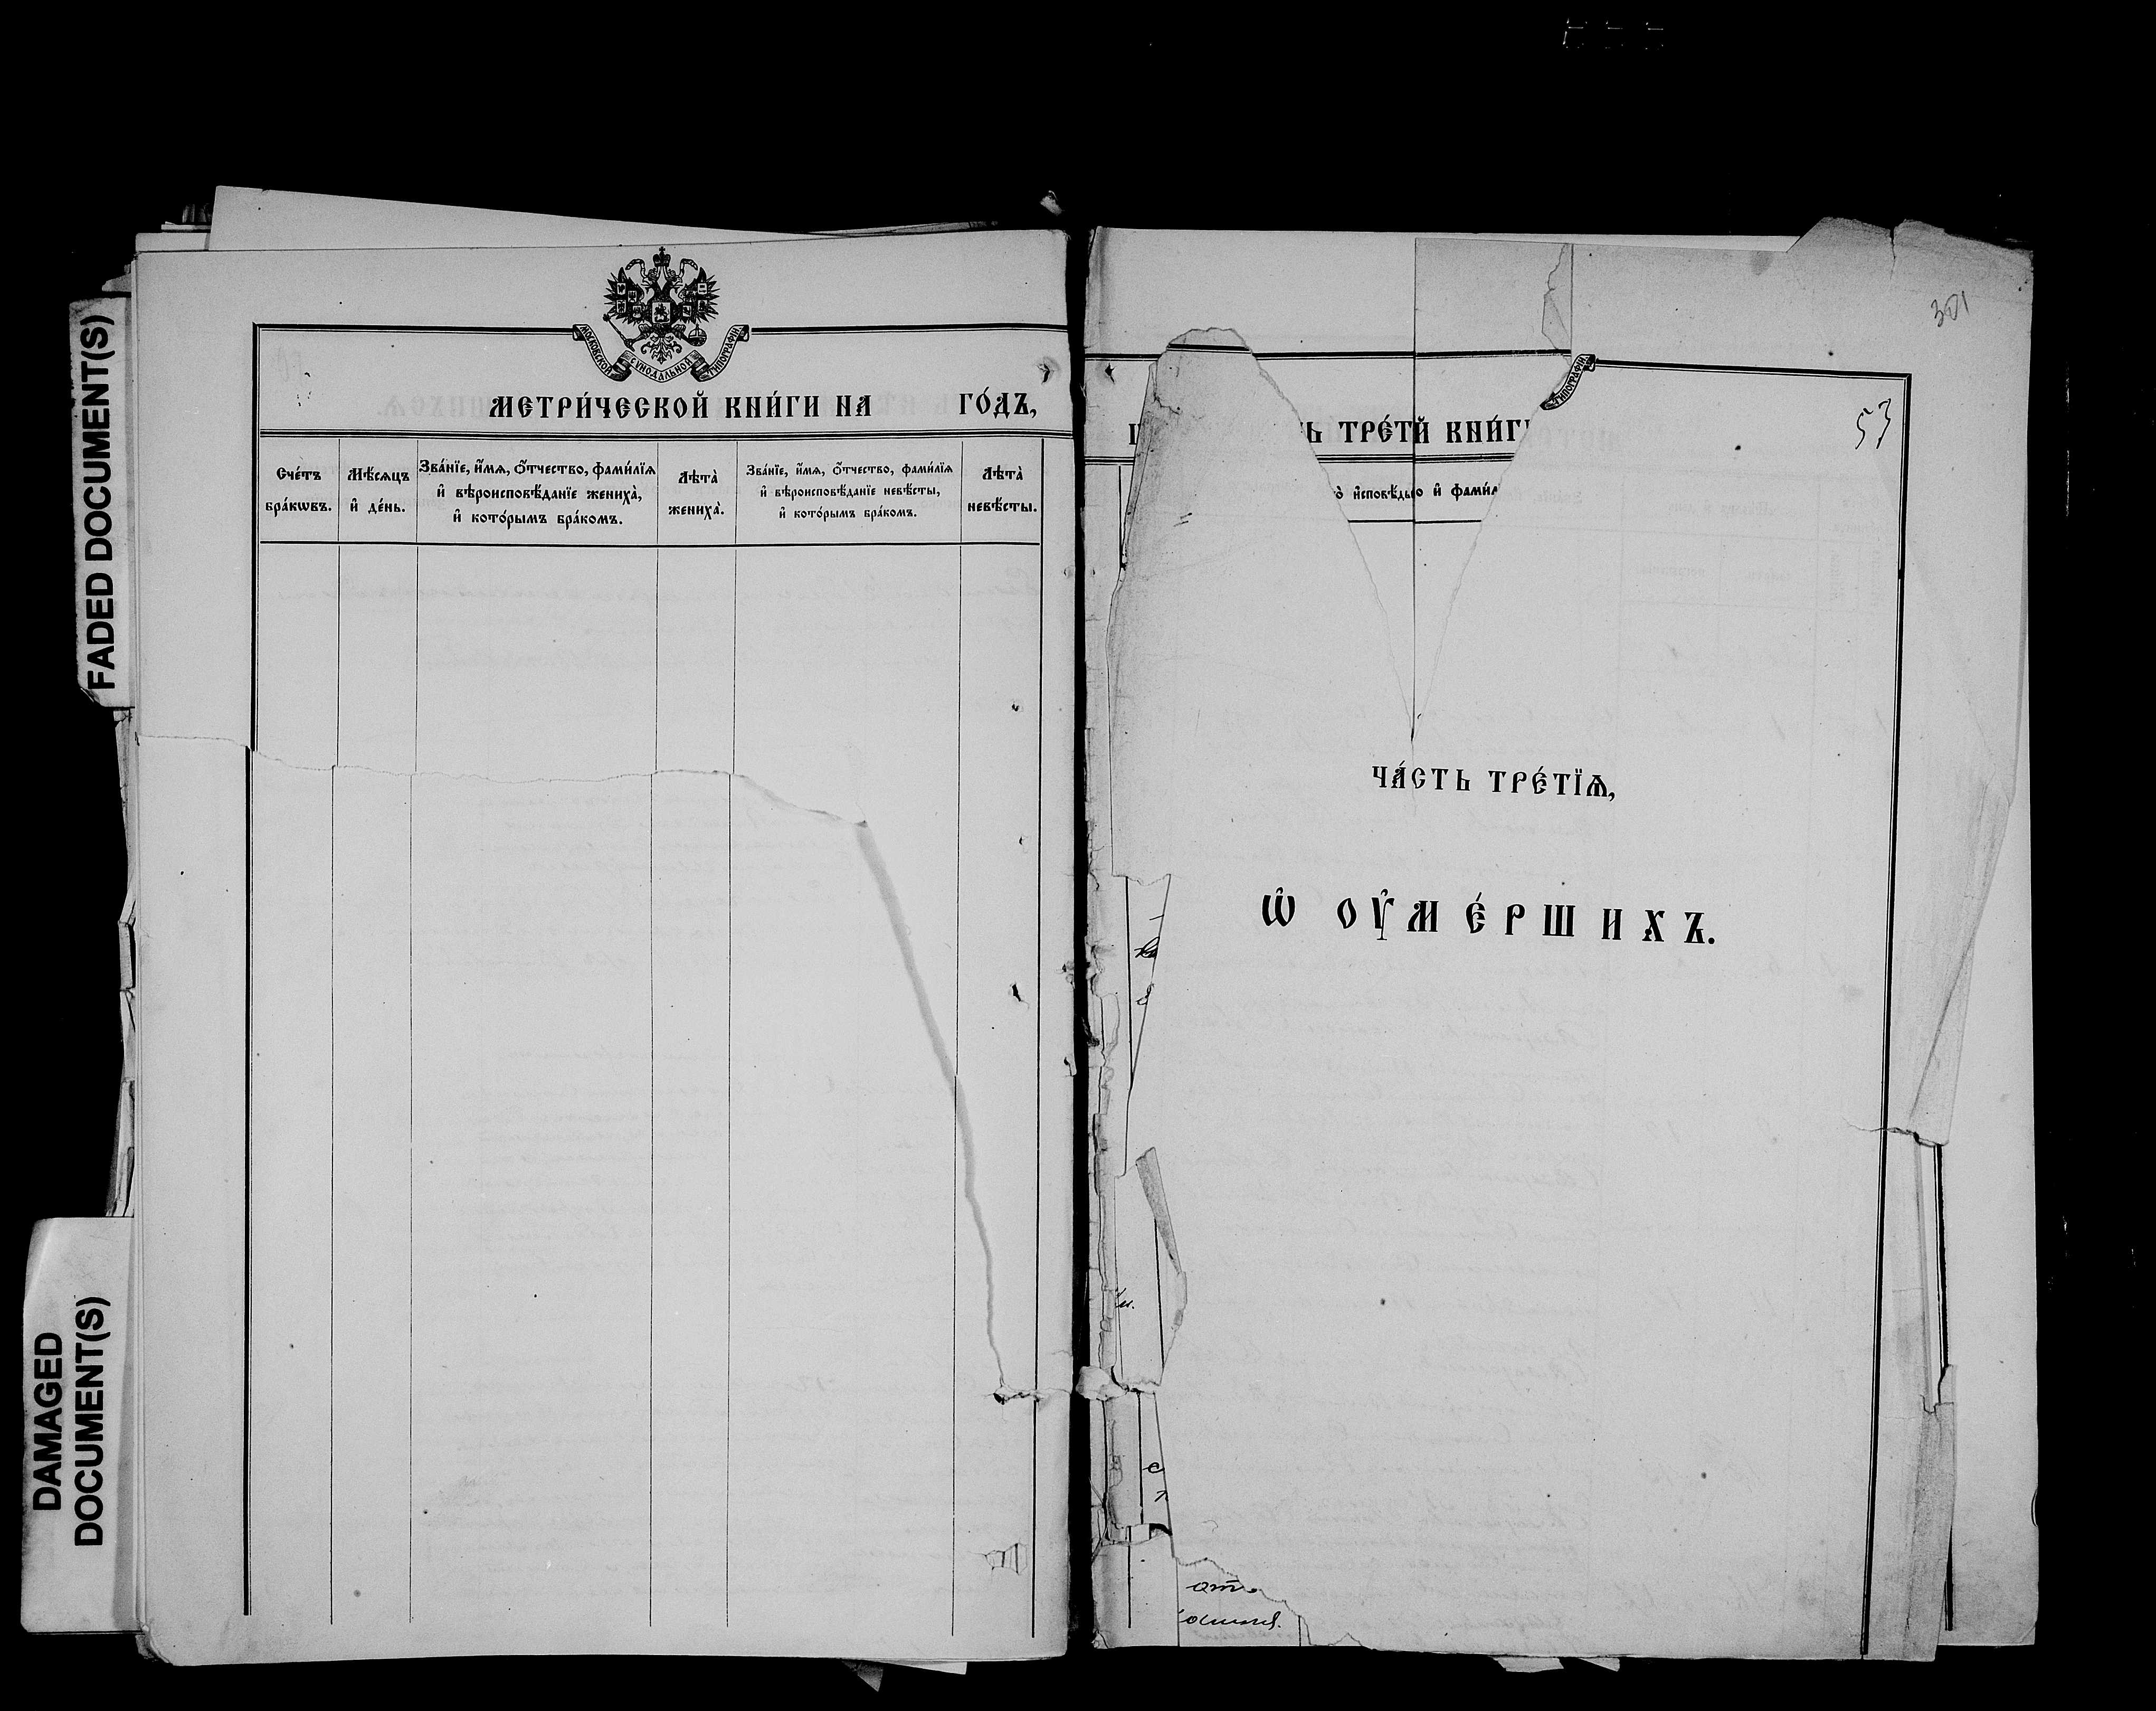 FADED DOCUMENT(S)
DAMAGED
DOCUMENT(S)
МОСКОВСКОЙ СѴНОДАЛЬНОЙ ТИПОГРАФІИ
МЕТРИ́ЧЕСКОЙ КНИ́ГИ НА ГО́ДЪ,
Сче́тъ
бра́кѡвъ.
Мѣ́сѧцъ
и҆ де́нь.
Зва́нїе, и҆́мѧ, ѻ҆́тчество, фами́лїѧ
и҆ вѣроисповѣ́данїе жениха̀,
и҆ кото́рымъ бра́комъ.
Лѣта̀
жениха̀.
Зва́нїе, и҆́мѧ, ѻ҆́тчество, фами́лїѧ
и҆ вѣроисповѣ́данїе невѣ́сты,
и҆ кото́рымъ бра́комъ.
Лѣта̀
невѣ́сты.
301
53
ТИПОГРАФІИ
Ь ТРЕ́ТЇЙ КНИ́Г
и҆́сповѣдью и҆ фами́л
ЧА́СТЬ ТРЕ́ТЇѦ,
Ѡ҆ ОУ҆МЕ́РШИХЪ.